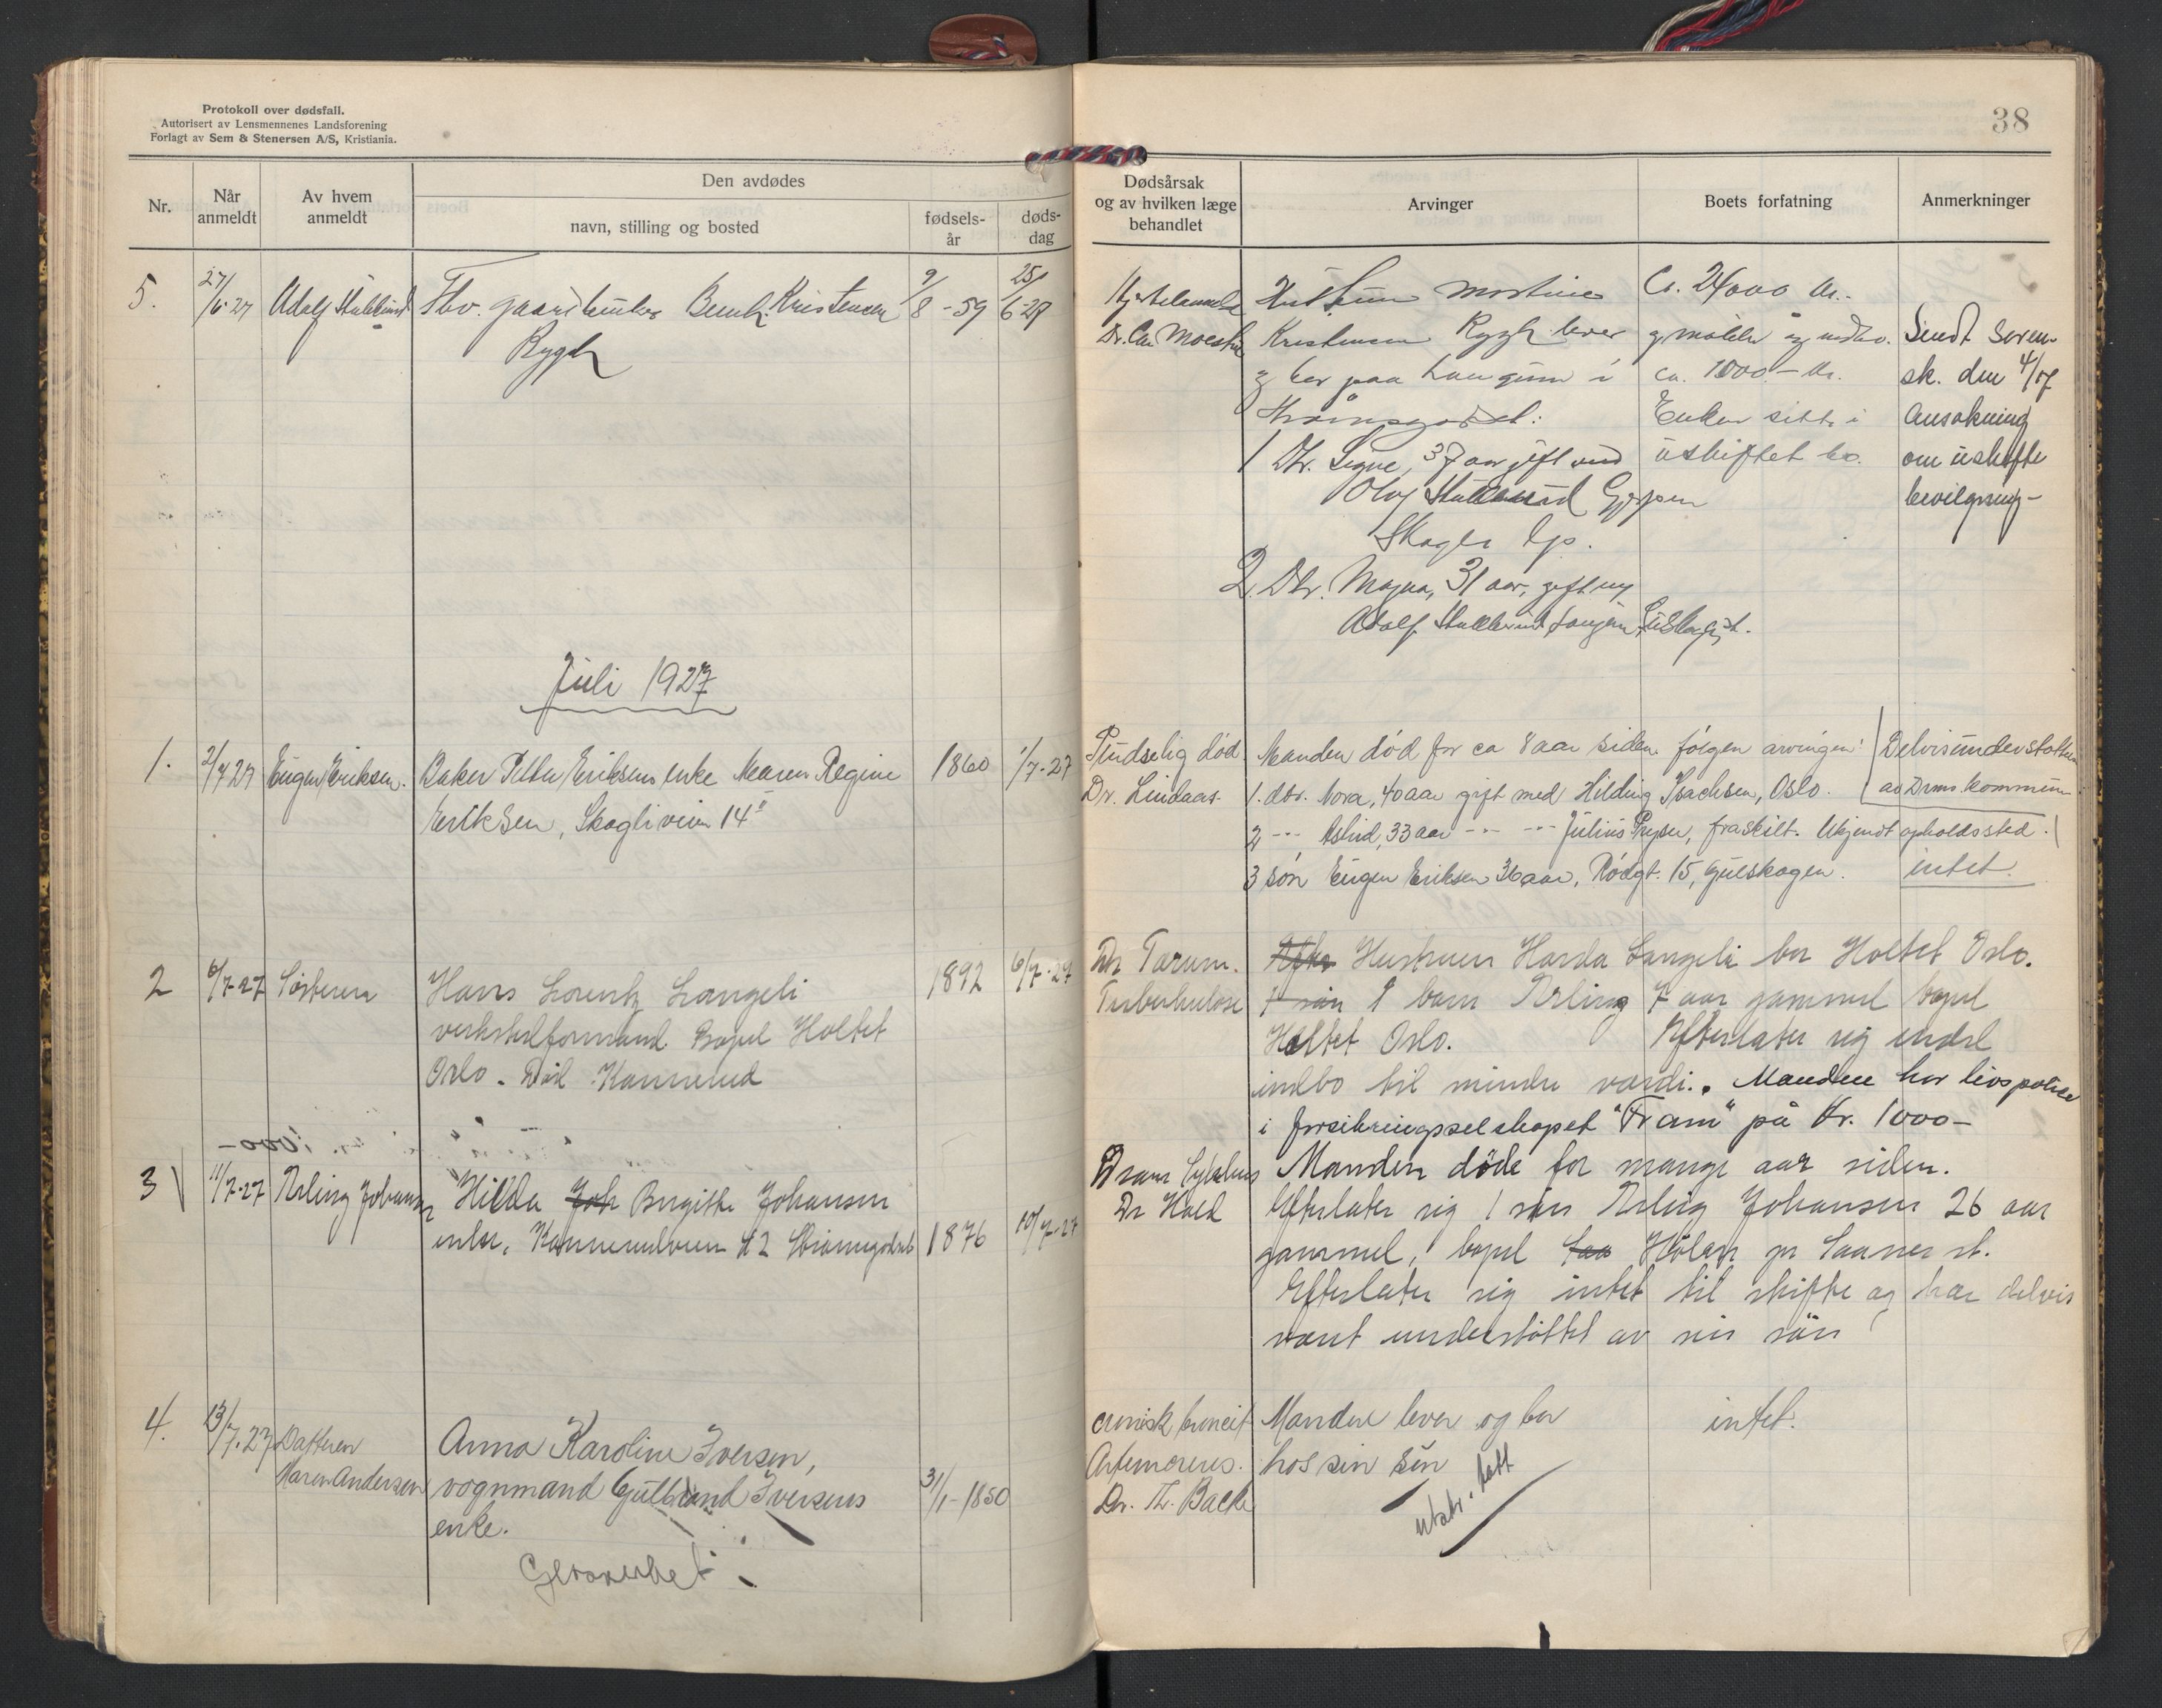 Protokoll over dødsfall.
Autorisert av Lensmennenes Landsforening
Forlagt av Sem & Stenersen A/S, Kristiania.
38
Nr.
Når anmeldt
Av hvem anmeldt
Den avdødes
navn, stilling og bosted
fødsels-år
døds-dag
Dødsårsak
og av hvilken læge
behandlet
Arvinger
Boets forfatning
Anmerkninger
5.
27/6-27
Adolf
Fhv. gaardbruker Bernh. Kristensen
Rygh
9/8-59
25/6-27
Dr.
Martine
Kristensen Rygh lever
1 Dtr. Signe, 37 aar gift med
Olaf
Skoger
2. Dtr. Magna, 31 aar, gift m/
Adolf
Ca. 24000 Kr.
ca. 1000.- Kr.
Enken sitter i
uskiftet bo.
Sendt Soren-
sk. den 4/7
Ansøkning
om uskifte
bevilgning-
Juli 1927
1.
2/7 27
Eugen Eriksen.
Baker Petter Eriksens enke Maren Regine
Eriksen, Skogliveien 14
1860
1/7-27
Pludselig død
Dr. Lindaas.
Manden død for ca 8 aar siden følgen arvinger:
1. dtr. Nora, 40 aar gift med Hilding Isachsen, Oslo.
2 -"- Astrid, 33 aar -"- -"- Julius Pryser, fraskilt. Ukjendt opholdssted.
3 søn Eugen Eriksen 36 aar, Rødgt. 15, Gulskogen.
Delvis understøttet
av Drms kommune
intet.
2
6/7-27
Søsteren
Hans Lorentz Langeli
verkstedformand. Bopel Holtet
Oslo. Død Konnerud
1892
6/7-27
Dr Tarum.
Tuberkulose
Hustruen Harda Langeli bor Holtet Oslo.
1 søn 1 barn Erling 7 aar gammel bopel
Holtet Oslo. Efterlater sig endel
indbo til mindre værdi. Manden har livspolice
i forsikringsselskapet "Fram" på Kr. 1000-
3
11/7-27
Erling Johansen
Hilda Joh Birgithe Johansen
enke. Konnerudveien 42 Strømsgodset
1876
10/7-27
Dr
Manden døde for mange aar siden.
Efterlater sig 1 søn Erling Johansen 26 aar
gammel, bopel Hølen pr Saaner st.
Efterlater sig intet til skifte og har delvis
vært understøttet av sin søn
4.
13/7-27
Datteren
Maren Andersen
Anna Karoline Iversen,
vognmand Gulbrand Iversens
enke.
31/1-1850
Dr. Th. Backe
Manden lever og bor
hos sin søn
intet.